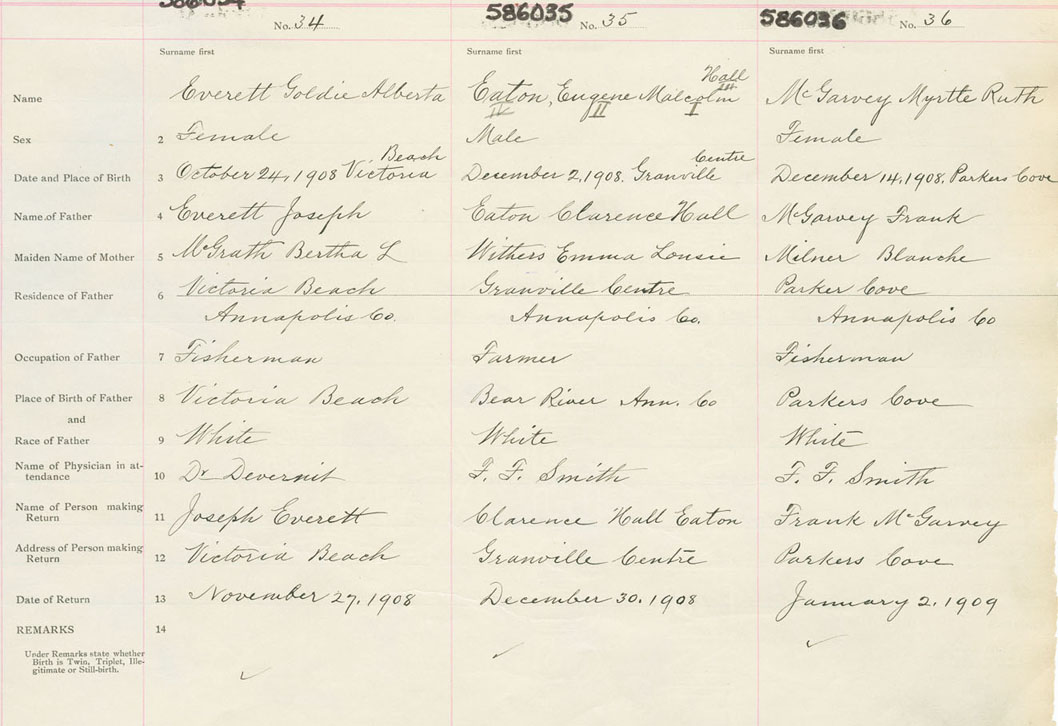 586034 586035 586036
No. 34 No. 35 No. 36
Surname first Surname first Surname first
Hall
III
Name Everett Goldie Alberta Eaton, Eugene Malcolm McGarvey Myrtle Ruth
IV II I
Sex 2 Female Male Female
Beach Centre
Date and Place of Birth 3 October 24, 1908 Victoria December 2, 1908. Granville December 14, 1908, Parkers Cove
Name of Father 4 Everett Joseph Eaton Clarence Hall McGarvey Frank
Maiden Name of Mother 5 McGrath Bertha L Withers Emma Lousie Milner Blanche
Residence of Father 6 Victoria Beach Granville Centre Parker Cove
Annapolis Co. Annapolis Co. Annapolis Co
Occupation of Father 7 Fisherman Farmer Fisherman
Place of Birth of Father 8 Victoria Beach Bear River Ann. Co Parkers Cove
and
Race of Father 9 White White White
Name of Physician in at-
tendance 10 Dr F. F. Smith F. F. Smith
Name of Person making
Return 11 Joseph Everett Clarence Hall Eaton Frank McGarvey
Address of Person making
Return 12 Victoria Beach Granville Centre Parkers Cove
Date of Return 13 November 27, 1908 December 30. 1908 January 2. 1909
REMARKS 14
Under Remarks state whether
Birth is Twin, Triplet, Ille-
gitimate or Still-birth.